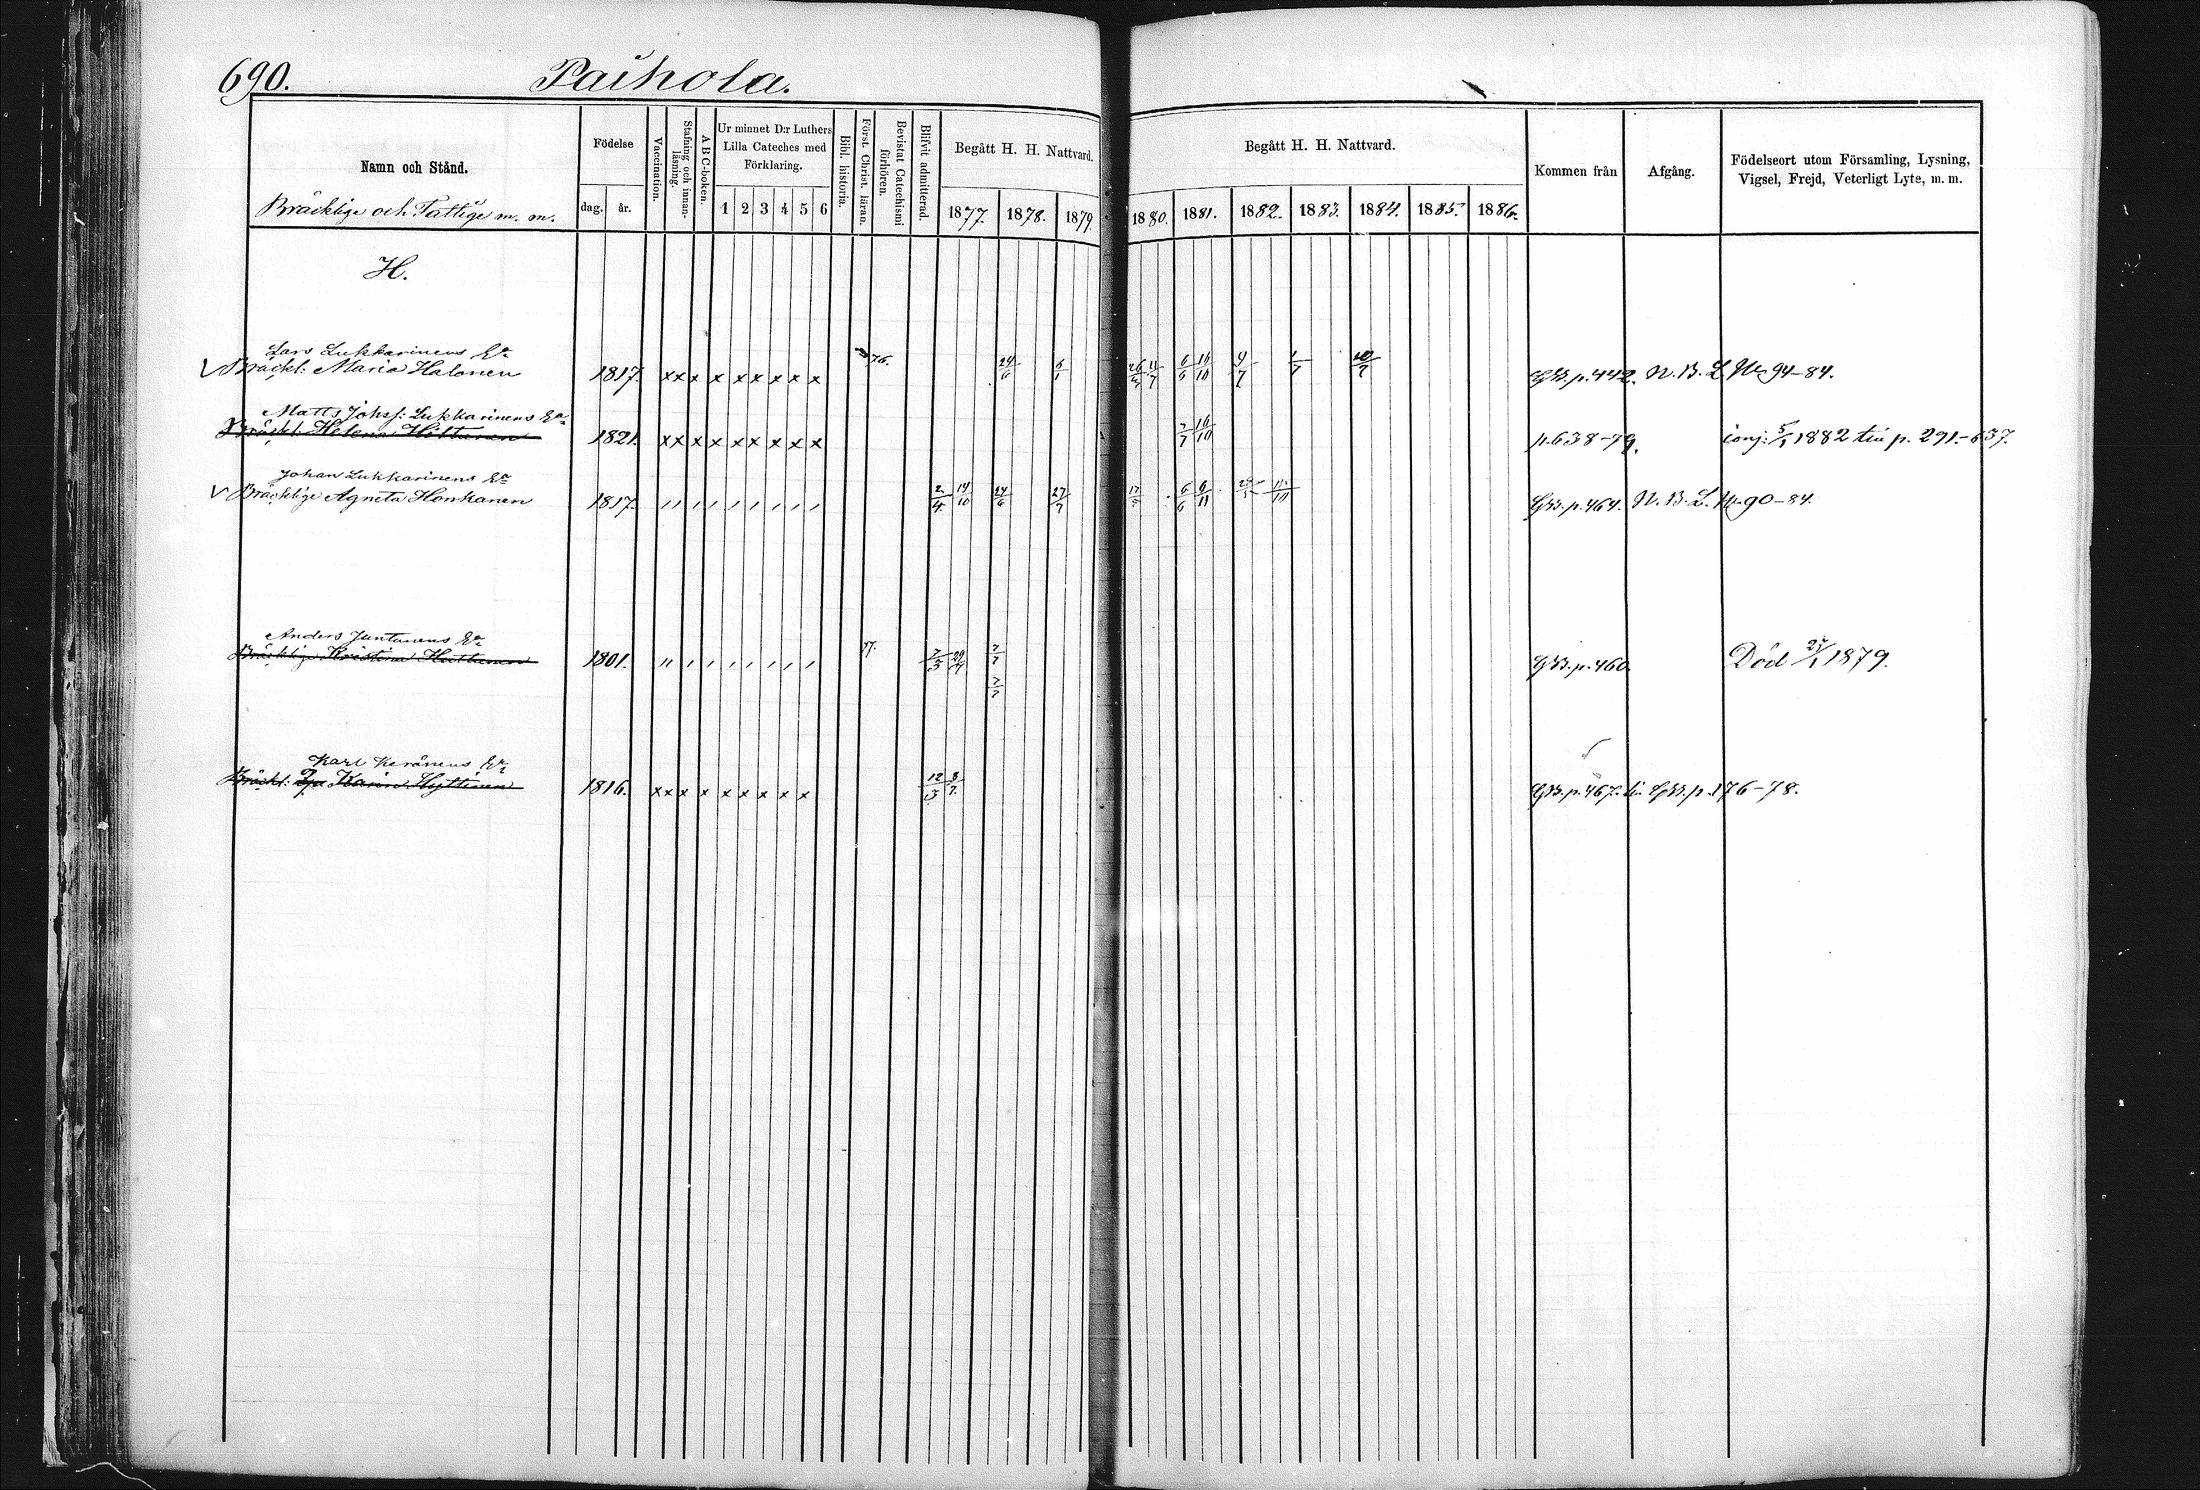 690. Paihola.
Namn och Stånd.
Bräcklige och Fattige m. m.
Födelse
dag. år.
Vaccination.
Stafning och innanläsning.
A B C-boken.
Ur minnet D:r Luthers
Lilla Cateches med
Förklaring.
1 2 3 4 5 6
Bibl. historia.
Först. Christ. läran.
Bevistat Catechismi förhören.
Blifvit admitterad.
Begått H. H. Nattvard.
1877. 1878. 1879.
Begått H. H. Nattvard.
1880. 1881. 1882. 1883. 1884. 1885. 1886.
Kommen från
Afgång.
Födelseort utom Församling, Lysning,
Vigsel, Frejd, Veterligt Lyte, m. m.
H.
Lars Lukkarinens Ea
V Bräckl: Maria Halonen 1817. x x x x x x x x x 76. 24/6 6/1 6/6 16/10 9/7 1/7 10/7 GB. p. 442. N. B. L. 94-84.
Matts Johsf: Lukkarinens Ea
Bräckl: Helena Hötturen 1821. x x x x x x x x x 7/7 16/10 p. 638-79. 5/1 1882 p. 291.-637.
Johan Lukkarinens Ea
V Bräcklige Agneta Honkanen 1817. 2/4 14/10 24/6 27/7 6/6 6/11 11/10 GB. p. 464. N. B. L. 90-84.
Anders Juntunens Ea
Bräcklige Kristina Huttunen 1801. 7/3 29/7 7/7 GB. p. 460. Död 1879.
Karl Keränens Ea
Bräckl: Karin Hyttinen 1816. x x x x x x x x x 12/3 8/7 GB. p. 467. p. 176-78.